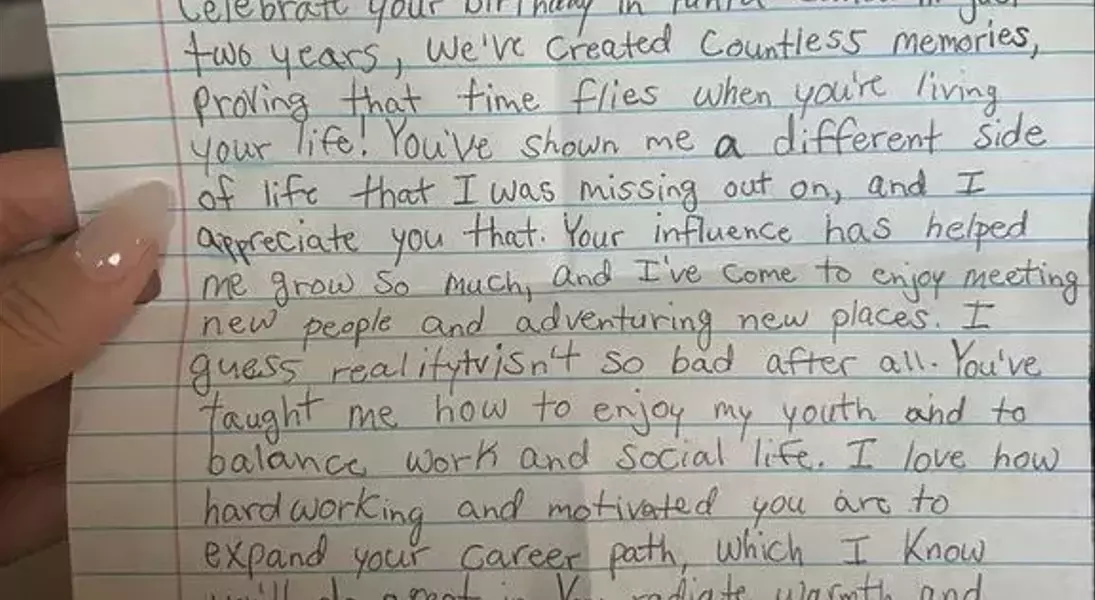 Celebrate your birthday in
two years, We've created Countless memories,
Proving that time flies when you're living
your life! You've shown me a different side
of life that I was missing out on, and I
appreciate you that. Your influence has helped
me grow so much, and I've come to enjoy meeting
new people and adventuring new places. I
guess realitytvisn't so bad after all. You've
taught me how to enjoy my youth and to
balance work and social life. I love how
hardworking and motivated you are to
expand your career path, which I know
you'll do great in. You radiate warmth and